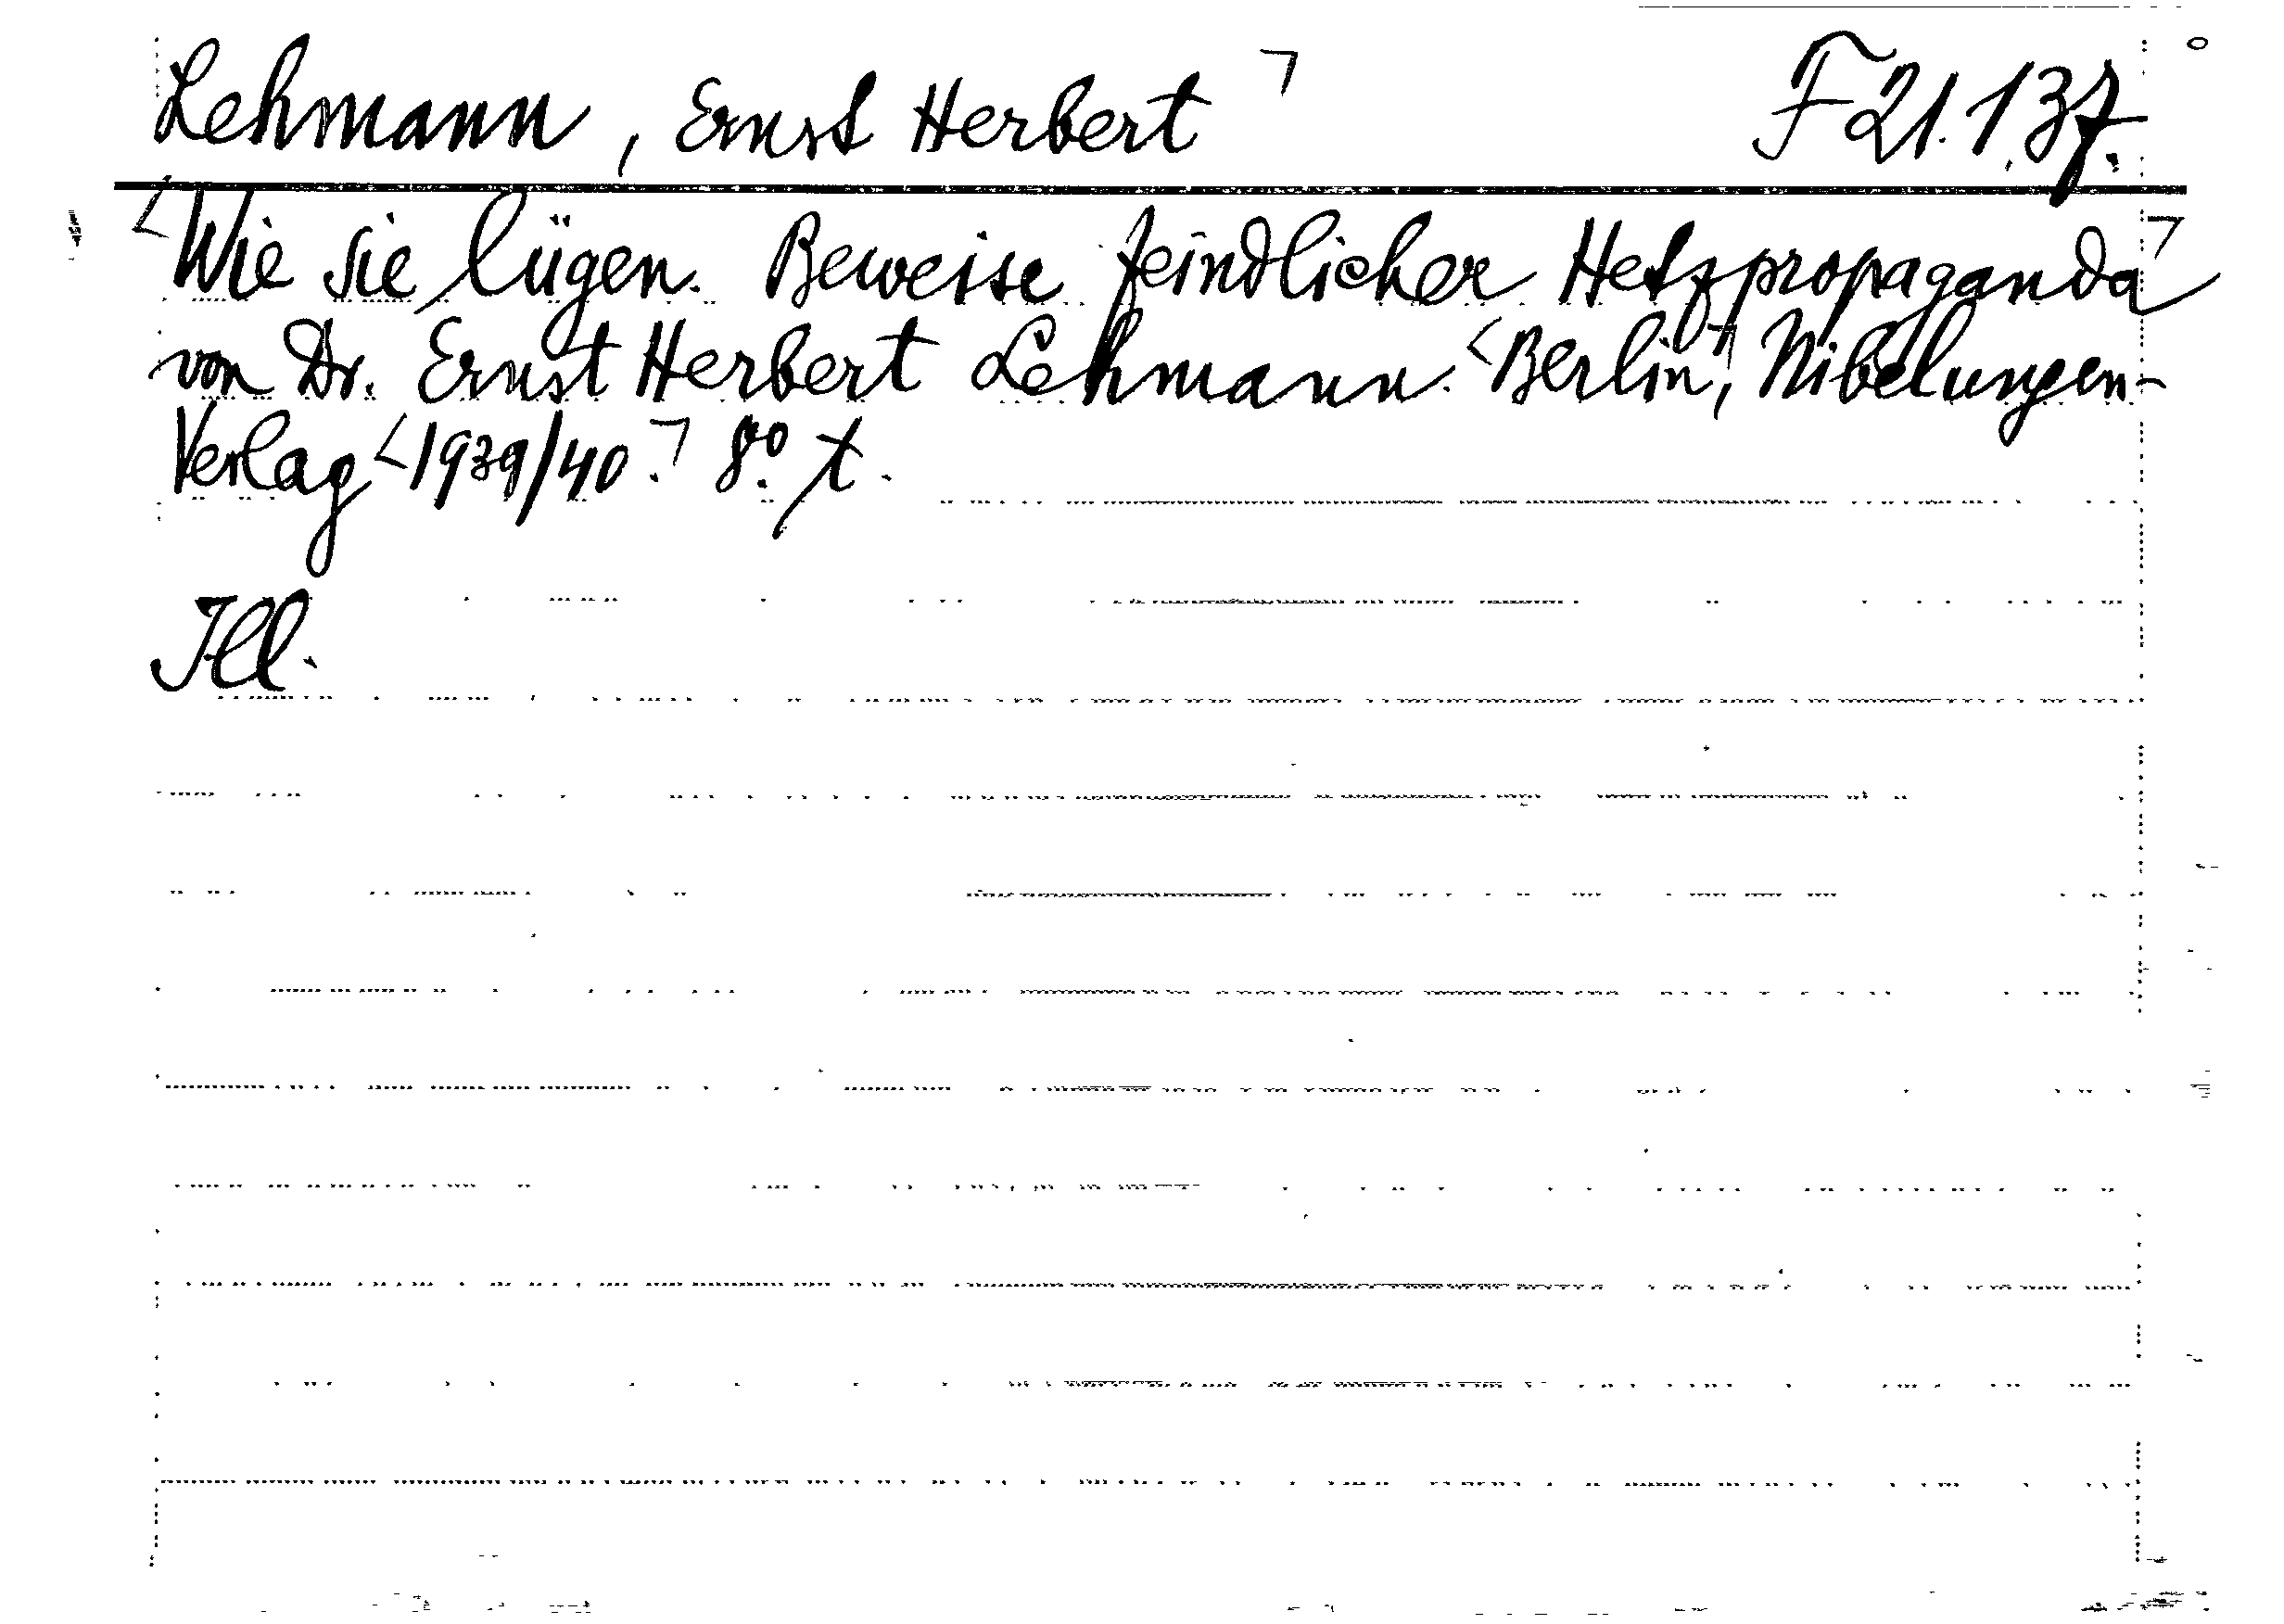 Lehmann, Ernst Herbert⌝ F 21.137.
<Wie sie lügen. Beweise feindlicher Hetzpropaganda⌝
von Dr. Ernst Herbert Lehmann. <Berlin,⌝ Nibelungen-
Verlag <1939/40.⌝ 8°. t.
Ill.